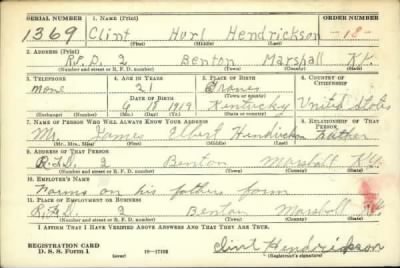 SERIAL NUMBER 1. NAME (Print) ORDER NUMBER
1369 Clint Hurl Hendrickson -18-
(First) (Middle) (Last)
2. ADDRESS (Print)
R.F.D. 2 Benton Marshall Ky.
(Number and street or R. F. D. number) (Town) (County) (State)
3. TELEPHONE 4. AGE IN YEARS 5. PLACE OF BIRTH 6. COUNTRY OF CITIZENSHIP
none 21
DATE OF BIRTH (Town or county)
6 18 1919 Kentucky United States
(Exchange) (Number) (Mo.) (Day) (Yr.) (State or country)
7. NAME OF PERSON WHO WILL ALWAYS KNOW YOUR ADDRESS 8. RELATIONSHIP OF THAT PERSON
Mr. James Elbert Hendrickson Father
(Mr., Mrs., Miss) (First) (Middle) (Last)
9. ADDRESS OF THAT PERSON
R.F.D. 2 Benton Marshall Ky.
(Number and street or R. F. D. number) (Town) (County) (State)
10. EMPLOYER'S NAME
Farms on his fathers farm
11. PLACE OF EMPLOYMENT OR BUSINESS
R.F.D. 2 Benton Marshall Ky.
(Number and street or R. F. D. number) (Town) (County) (State)
I AFFIRM THAT I HAVE VERIFIED ABOVE ANSWERS AND THAT THEY ARE TRUE.
REGISTRATION CARD
D. S. S. Form 1 (over) 16-17105 Clint Hendrickson
(Registrant's signature)